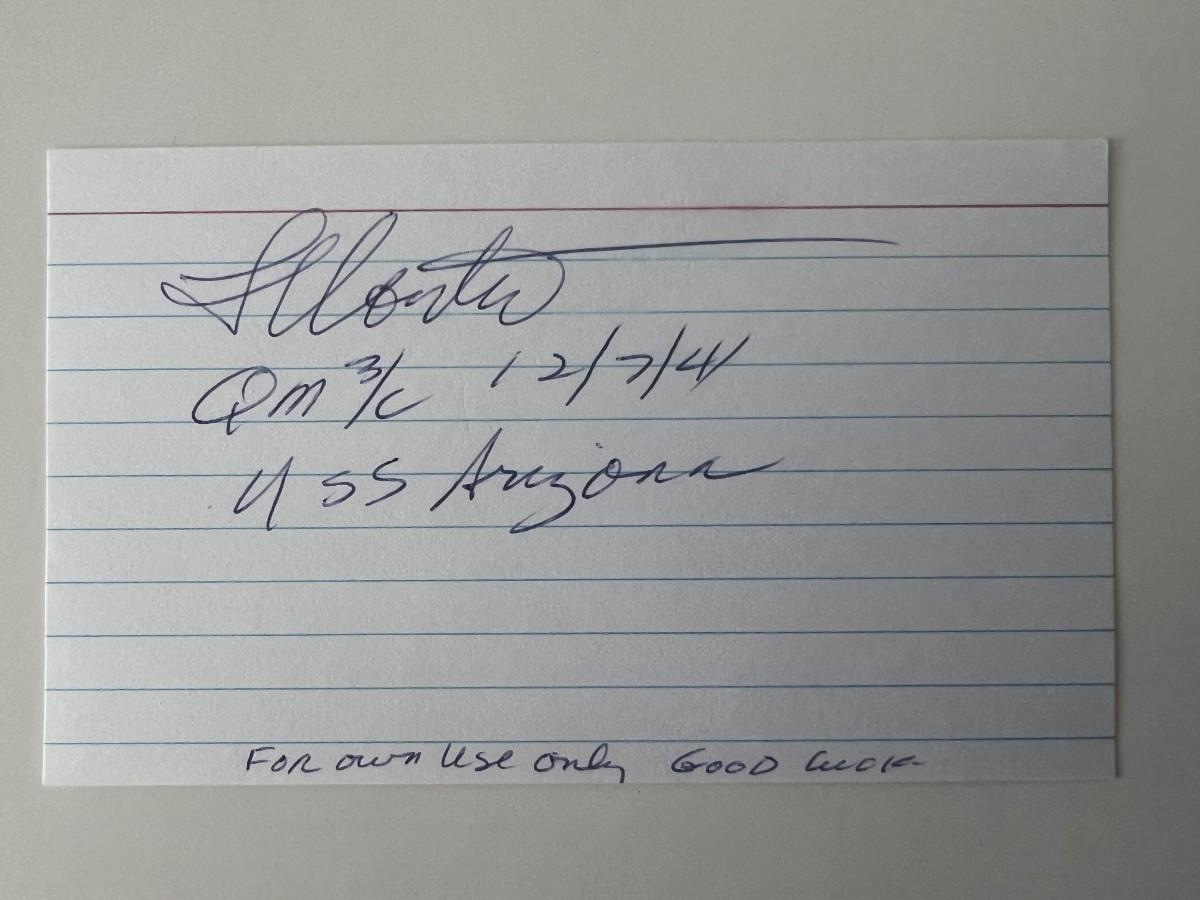 QM 3/c 12/7/41
USS Arizona
For own Use only Good Luck